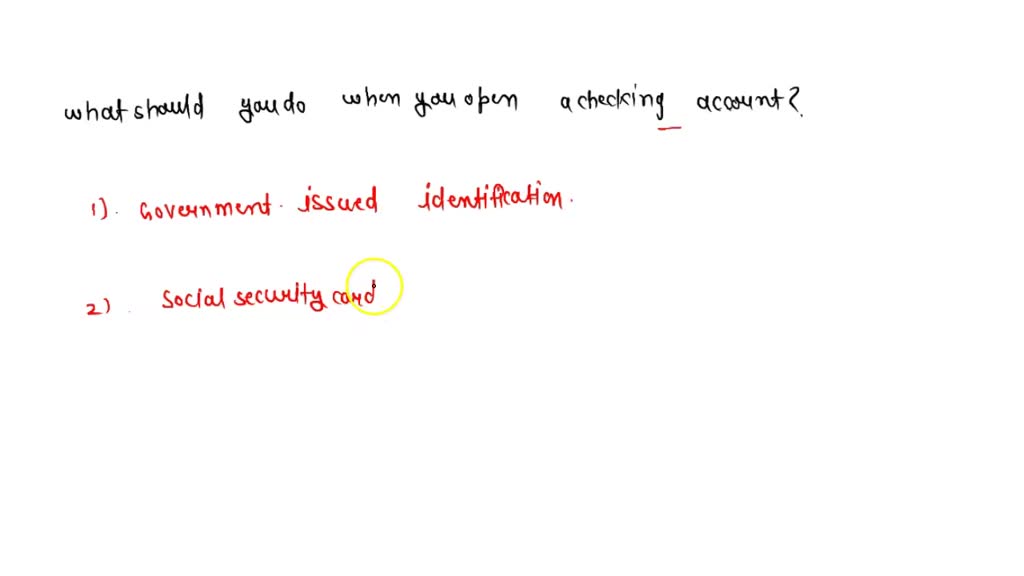 what should you do when you open a checking account?
1). Government issued identification.
2) Social security card